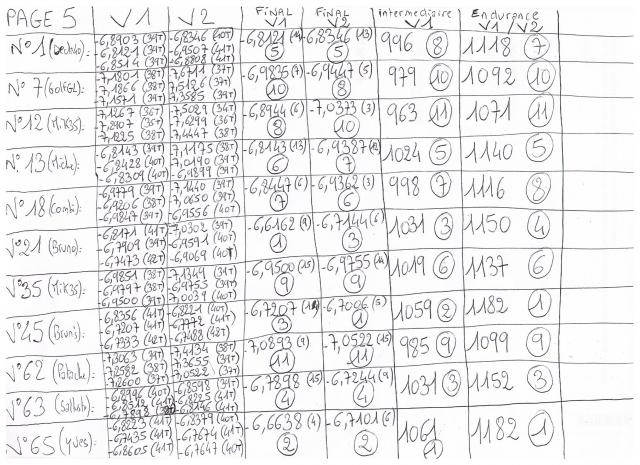 PAGE 5 V1 V2 FINAL V1 FINAL V2 intermédiaire Endurance V1/V2
-6,8903 (39T) -6,8346 (40T)
N°1 -6,8121 (39T) -6,9507 (41T) -6,8121 (5) -6,8346 (13) (5) 996 (8) 1118 (7)
-6,8514 (39T) -6,8808 (41T)
-7,1801 (38T) -7,6711 (37T)
N°7 (GolfGL): -7,1866 (38T) (37T) -6,9835 (10) -6,9447 (5) (8) 979 (10) 1092 (10)
-7,1571 (39T) -7,3585 (39T)
-7,1267 (36T) -7,5029 (34T)
N°12 (Mik35): (35T) -7,6299 (36T) -6,8944 (6) (8) -7,0373 (3) (10) 963 (11) 1071 (11)
-7,1225 (38T) -7,4447 (38T)
-6,8143 (39T) -7,1175 (38T)
N°13 (Micha): -6,8428 (40T) -7,0190 (39T) -6,8143 (13) (6) -6,9387 (7) 1024 (5) 1140 (5)
-6,8309 (40T) -6,9899 (39T)
-6,9779 (39T) -7,1440 (39T)
N°18 (Combi): -6,9206 (38T) -7,0650 (38T) -6,8447 (6) (7) -6,9362 (3) (6) 998 (7) 1116 (8)
-6,9847 (39T) -6,9556 (40T)
-6,8171 (41T) -7,0302 (39T)
N°21 (Bruno): -6,7909 (39T) -6,9591 (40T) -6,6162 (1) -6,7144 (6) (3) 1031 (3) 1150 (4)
-6,7473 (42T) -6,9069 (40T)
-6,9851 (38T) -7,1349 (39T)
N°35 (Mik35): -6,9797 (38T) -6,9755 (39T) -6,9500 (15) (9) -6,9755 (9) 1019 (6) 1137 (6)
-6,9500 (39T) -7,0039 (40T)
-6,8356 (41T) -6,8221 (40T)
N°45 (Bruno): -6,7207 (41T) -6,7772 (41T) -6,7207 (3) -6,7006 (5) (1) 1059 (2) 1182 (1)
-6,7333 (42T) -6,7488 (42T)
-7,3063 (39T) -7,4134 (38T)
N°62 (Patache): -7,2582 (38T) -7,3655 (39T) -7,0893 (11) -7,0522 (15) (11) 985 (9) 1099 (9)
-7,2600 (37T) -7,0522 (37T)
-6,8996 (40T) -6,8598 (39T)
N°63 -6,8225 (41T) -6,7898 (15) (4) -6,7244 (9) (4) 1031 (3) 1152 (3)
-6,7898 -6,8146 (41T)
-6,8223 (41T) -6,8379 (40T)
N°65 (Yves): -6,7435 (41T) -6,7674 (41T) -6,6638 (4) (2) -6,7101 (6) (2) 1061 (1) 1182 (1)
-6,8605 (41T) -6,7647 (40T)